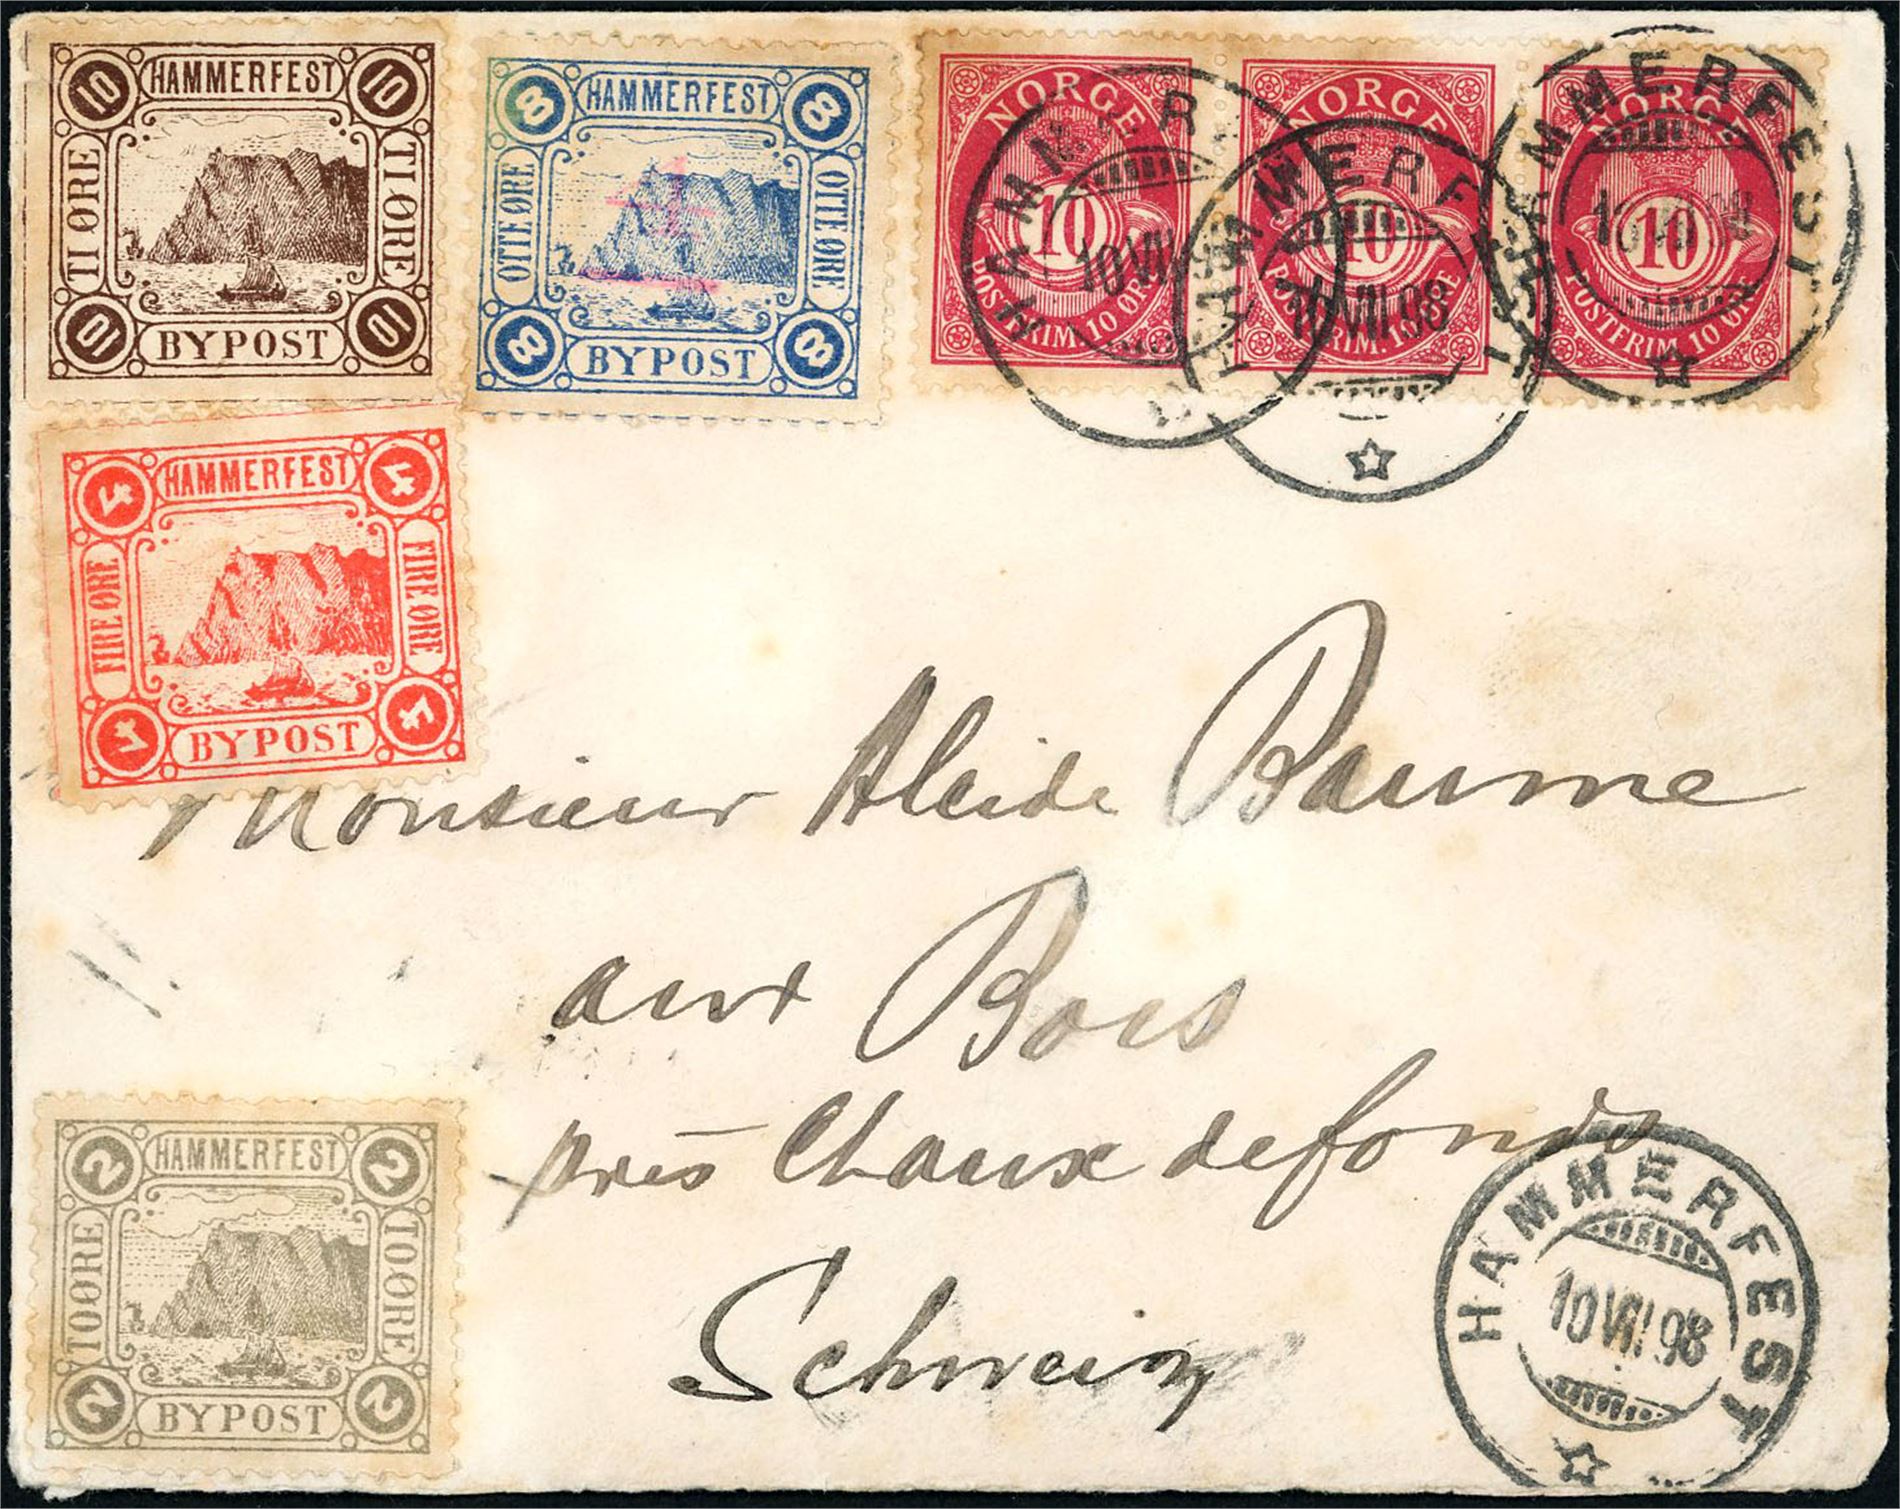 10 HAMMERFEST 10
TI ØRE TI ØRE
10 BYPOST 10
8 HAMMERFEST 8
OTTE ØRE OTTE ØRE
8 BYPOST 8
NORGE
10
POSTFRIM. 10 ØRE
NORGE
10
POSTFRIM. 10 ØRE
NORGE
10
POSTFRIM. 10 ØRE
HAMMER
10 VII
HAMMERFEST
VIII 98
HAMMERFEST
98
4 HAMMERFEST 4
FIRE ØRE FIRE ØRE
4 BYPOST 4
Monsieur Alcide Baume
aux Bois
près Chaux de fonds
Schweiz
2 HAMMERFEST 2
TO ØRE TO ØRE
2 BYPOST 2
HAMMERFEST
10 VIII 98